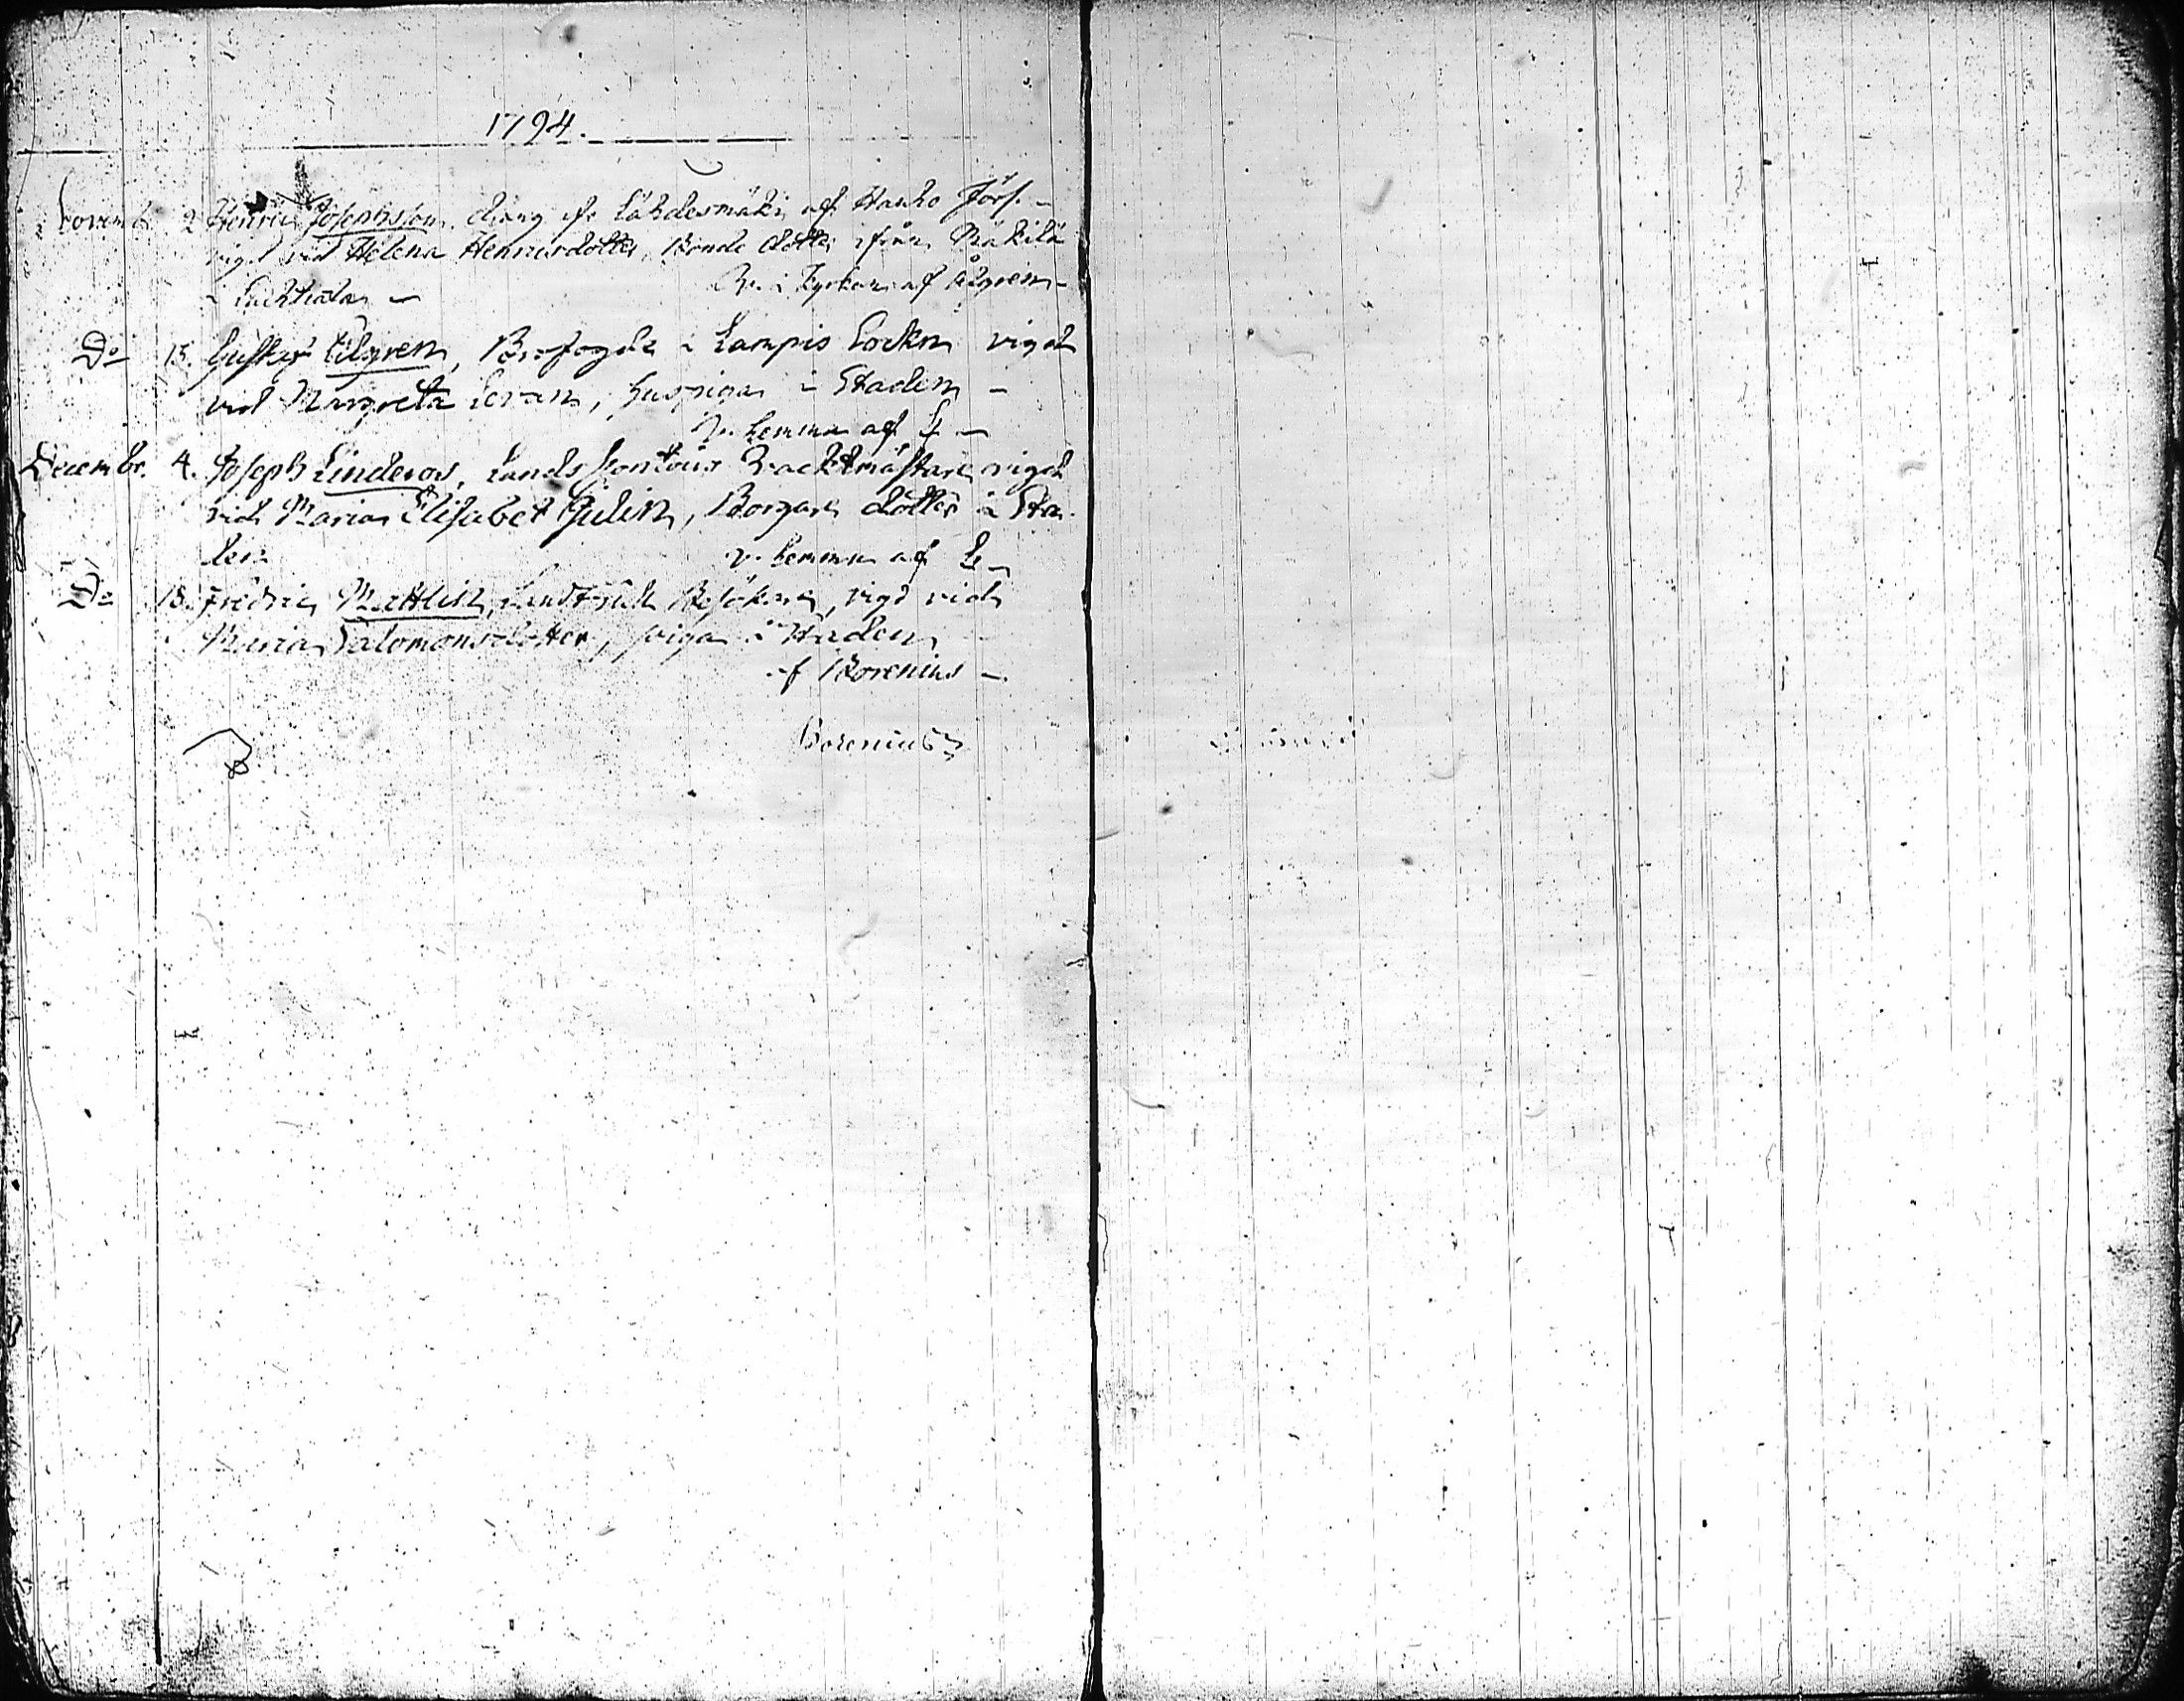 1794.
Novembr. 2 Henric Josephsson, dräng ifr. Lähdesmäki af Hauho Förs.
vigd vid Helena Henricsdotter, Bonde dotter ifrån Mäkilä
i Kyrkan af
Do 15. Gustaf Lilgren, Brofogde i Lampis Sockn vigd
vid Margreta Levan, huspiga i Staden
hemma af L
Decembr. 4. Joseph Linderos, Lands Contoirs Vacktmästare vigd
vid Maria Elisabet Julin, Borgare dotter i Sta-
den hemma af L
Do 18. Fredric Mattlin, Besökare, vigd vid
Maria Salomonsdotter, piga i Staden
af Borenius
Borenius